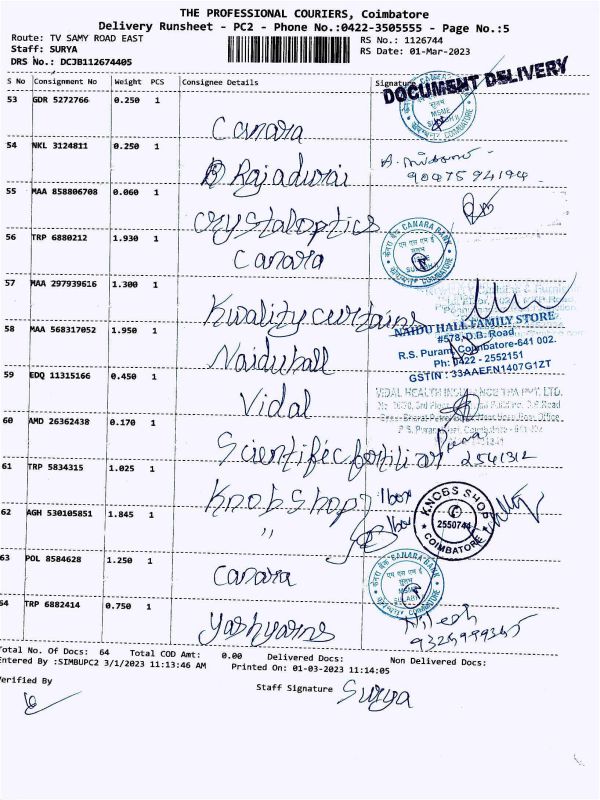 THE PROFESSIONAL COURIERS, Coimbatore
Delivery Runsheet - PC2 - Phone No.:0422-3505555 - Page No.:5
Route: TV SAMY ROAD EAST
RS No.: 1126744
Staff: SURYA
RS Date: 01-Mar-2023
DRS No.: DCJB112674405
S No Consignment No Weight PCS Consignee Details Signature
DOCUMENT DELIVERY
53 GDR 5272766 0.250 1
Canara
54 NKL 3124811 0.250 1
Rajadurai
55 MAA 858806708 0.060 1
crystaloptics
56 TRP 6880212 1.930 1
CANARA BANK
Canara
57 MAA 297939616 1.300 1
Kwality curtains
58 MAA 568317052 1.950 1
NAIDU HALL FAMILY STORE
#578, D.B. Road,
R.S. Puram, Coimbatore-641 002.
Ph: 0422 - 2552151
GSTIN : 33AAEFN1407G1ZT
Naiduhall
59 EDQ 11315166 0.450 1
VIDAL HEALTH INSURANCE TPA PVT. LTD.
Vidal
60 AMD 26362438 0.170 1
Scientific fertili
2541312
61 TRP 5834315 1.025 1
Knobshop 1box
KNOBS SHOP
2550744
COIMBATORE
62 AGH 530105851 1.845 1
" 1box
63 POL 8584628 1.250 1
CANARA BANK
canara
64 TRP 6882414 0.750 1
Yashyarns
Nitesh
Total No. Of Docs: 64 Total COD Amt: 0.00 Delivered Docs: Non Delivered Docs:
Entered By :SIMBUPC2 3/1/2023 11:13:46 AM Printed On: 01-03-2023 11:14:05
Verified By
Staff Signature Surya